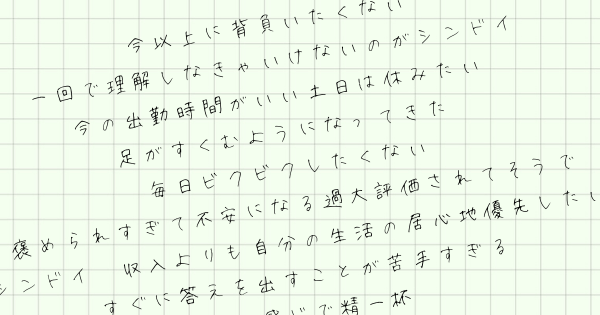 今以上に背負いたくない
一回で理解しなきゃいけないのがシンドイ
今の出勤時間がいい土日は休みたい
足がすくむようになってきた
毎日ビクビクしたくない
褒められすぎて不安になる過大評価されてそうで
シンドイ 収入よりも自分の生活の居心地優先したい
すぐに答えを出すことが苦手すぎる
で精一杯